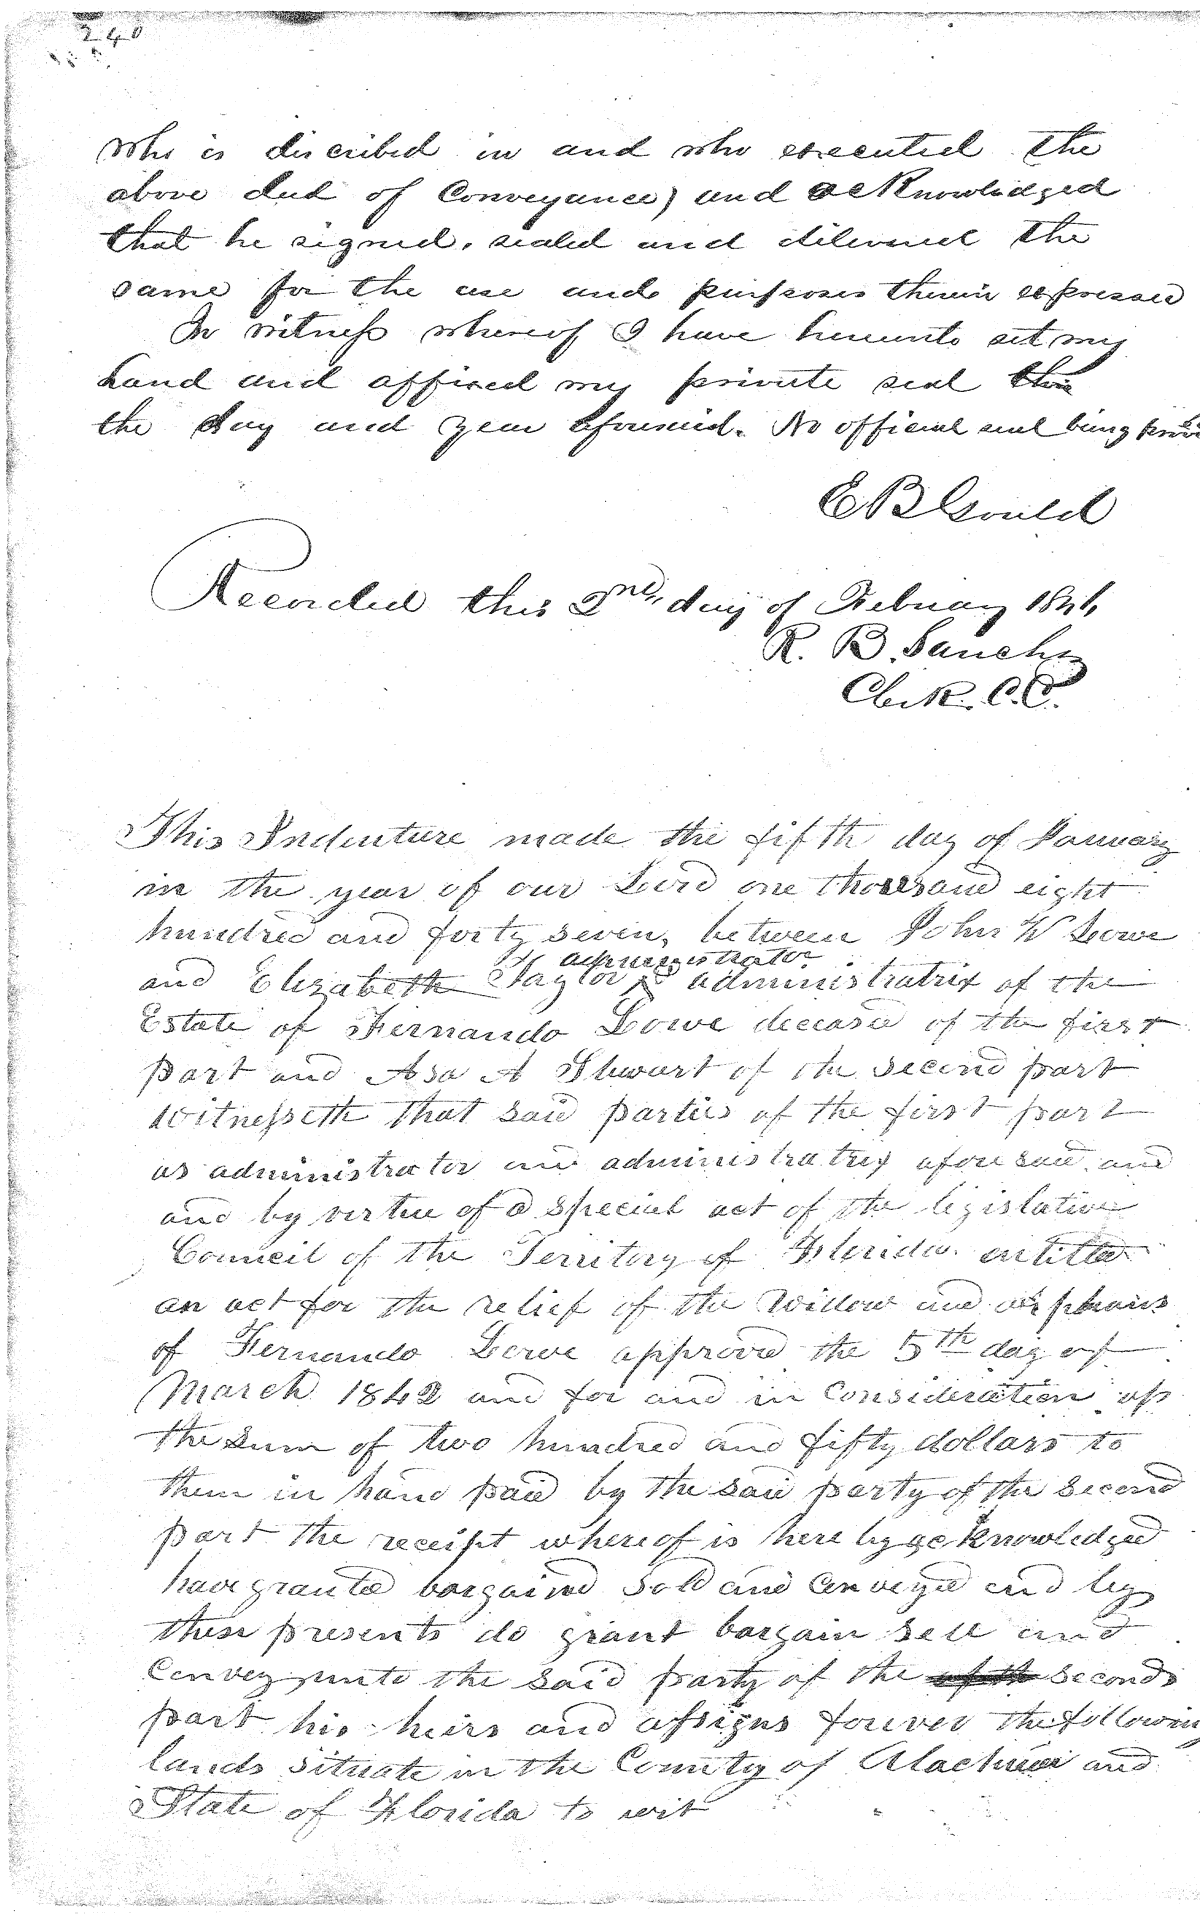 240
who is discribed in and who executed the
above deed of Conveyance) and acknowledged
that he signed, sealed and delivered the
same for the use and purposes therein expressed
In witness whereof I have hereunto set my
hand and affixed my private seal this
the day and year aforesaid. No official seal being
E B Gould
Recorded this 2nd, day of Februay
R. B. Sanchz
Clerk. C.C.
This Indenture made the fifth day of January
in the year of our Lord one thousand eight
hundred and forty seven, between John W Lowe
administrator
and Elizabeth Taylor administratrix of the
Estate of Fernando Lowe deceased of the first
part and Asa A Stewart of the second part
Witnesseth that said parties of the first part
as administrator and administratrix aforesaid and
and by virtue of a special act of the legislative
Council of the Territory of Florida entitled
an act for the relief of the Widow and orphans
of Fernando Lowe approved the 5th day of
March 1842 and for and in Consideration of
the sum of two hundred and fifty dollars to
them in hand paid by the said party of the second
part the receipt whereof is here by acknowledged
have granted bargained Sold and Conveyed and by
these presents do grant bargain sell and
Convey unto the said party of the second
part his heirs and assigns forever the following
lands situate in the County of Alachua and
State of Florida to wit